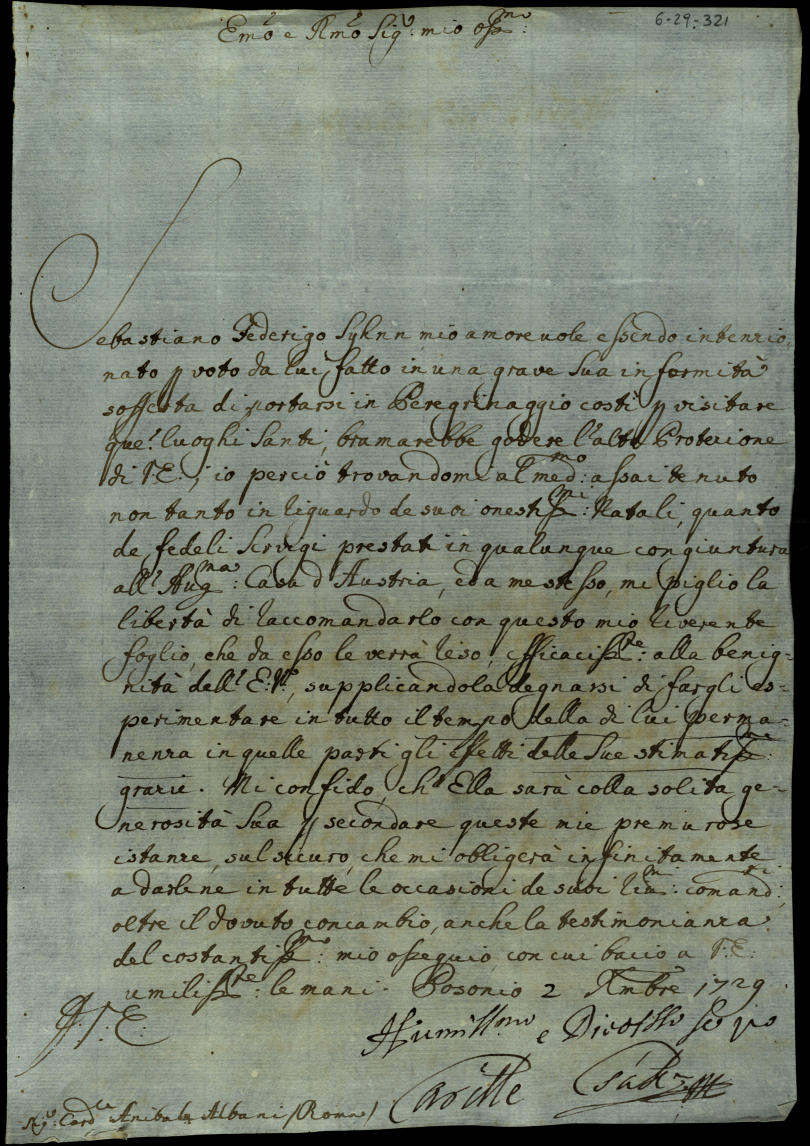 6-29-321
Em̃o e Rm̃o Sig.r mio oss.mo:
Sebastiano Federigo Syhnn mio amoreuole essendo intenzio,
nato p voto da lui fatto in una grave Sua infermità
sofferta di portarsi in Peregrinaggio costi p visitare
que' luoghi Santi, bramarebbe godere l'alta Protezione
di V.E., io perciò trovandomi al med.mo: assai tenuto
non tanto in riguardo de suoi onestiss.mi: Natali, quanto
de, fedeli Servigi prestati in qualunque congiuntura
all' Aug.ma: Casa d'Austria, ed a me stesso, mi piglio la
libertà di raccomandarlo con questo mio riverente
foglio, che da esso le verrà reso, efficaciss.te: alla benig-
nità dell' E.V., supplicandola degnarsi di fargli es-
perimentare in tutto il tempo della di lui perma-
nenza in quelle parti gli effetti delle Sue stimatiss.me:
grazie. Mi confido, ch' Ella sarà colla solita ge-
nerosità Sua p secondare queste mie premurose
istanze, sul sicuro, che mi obligerà infinitamente
a darlene in tutte le occasioni de suoi riu.mi: comandi;
oltre il dovuto concambio, anche la testimonianza
del costantiss.mo: mio ossequio, con cui bacio a V.E:
umiliss.te: le mani. Posonio 2 Xmbre 1729
A.V.E:
Humill.mo e Divotss.o Ser.
Car. Csáky
Sig.r Card.le Anibale Albani /Roma/